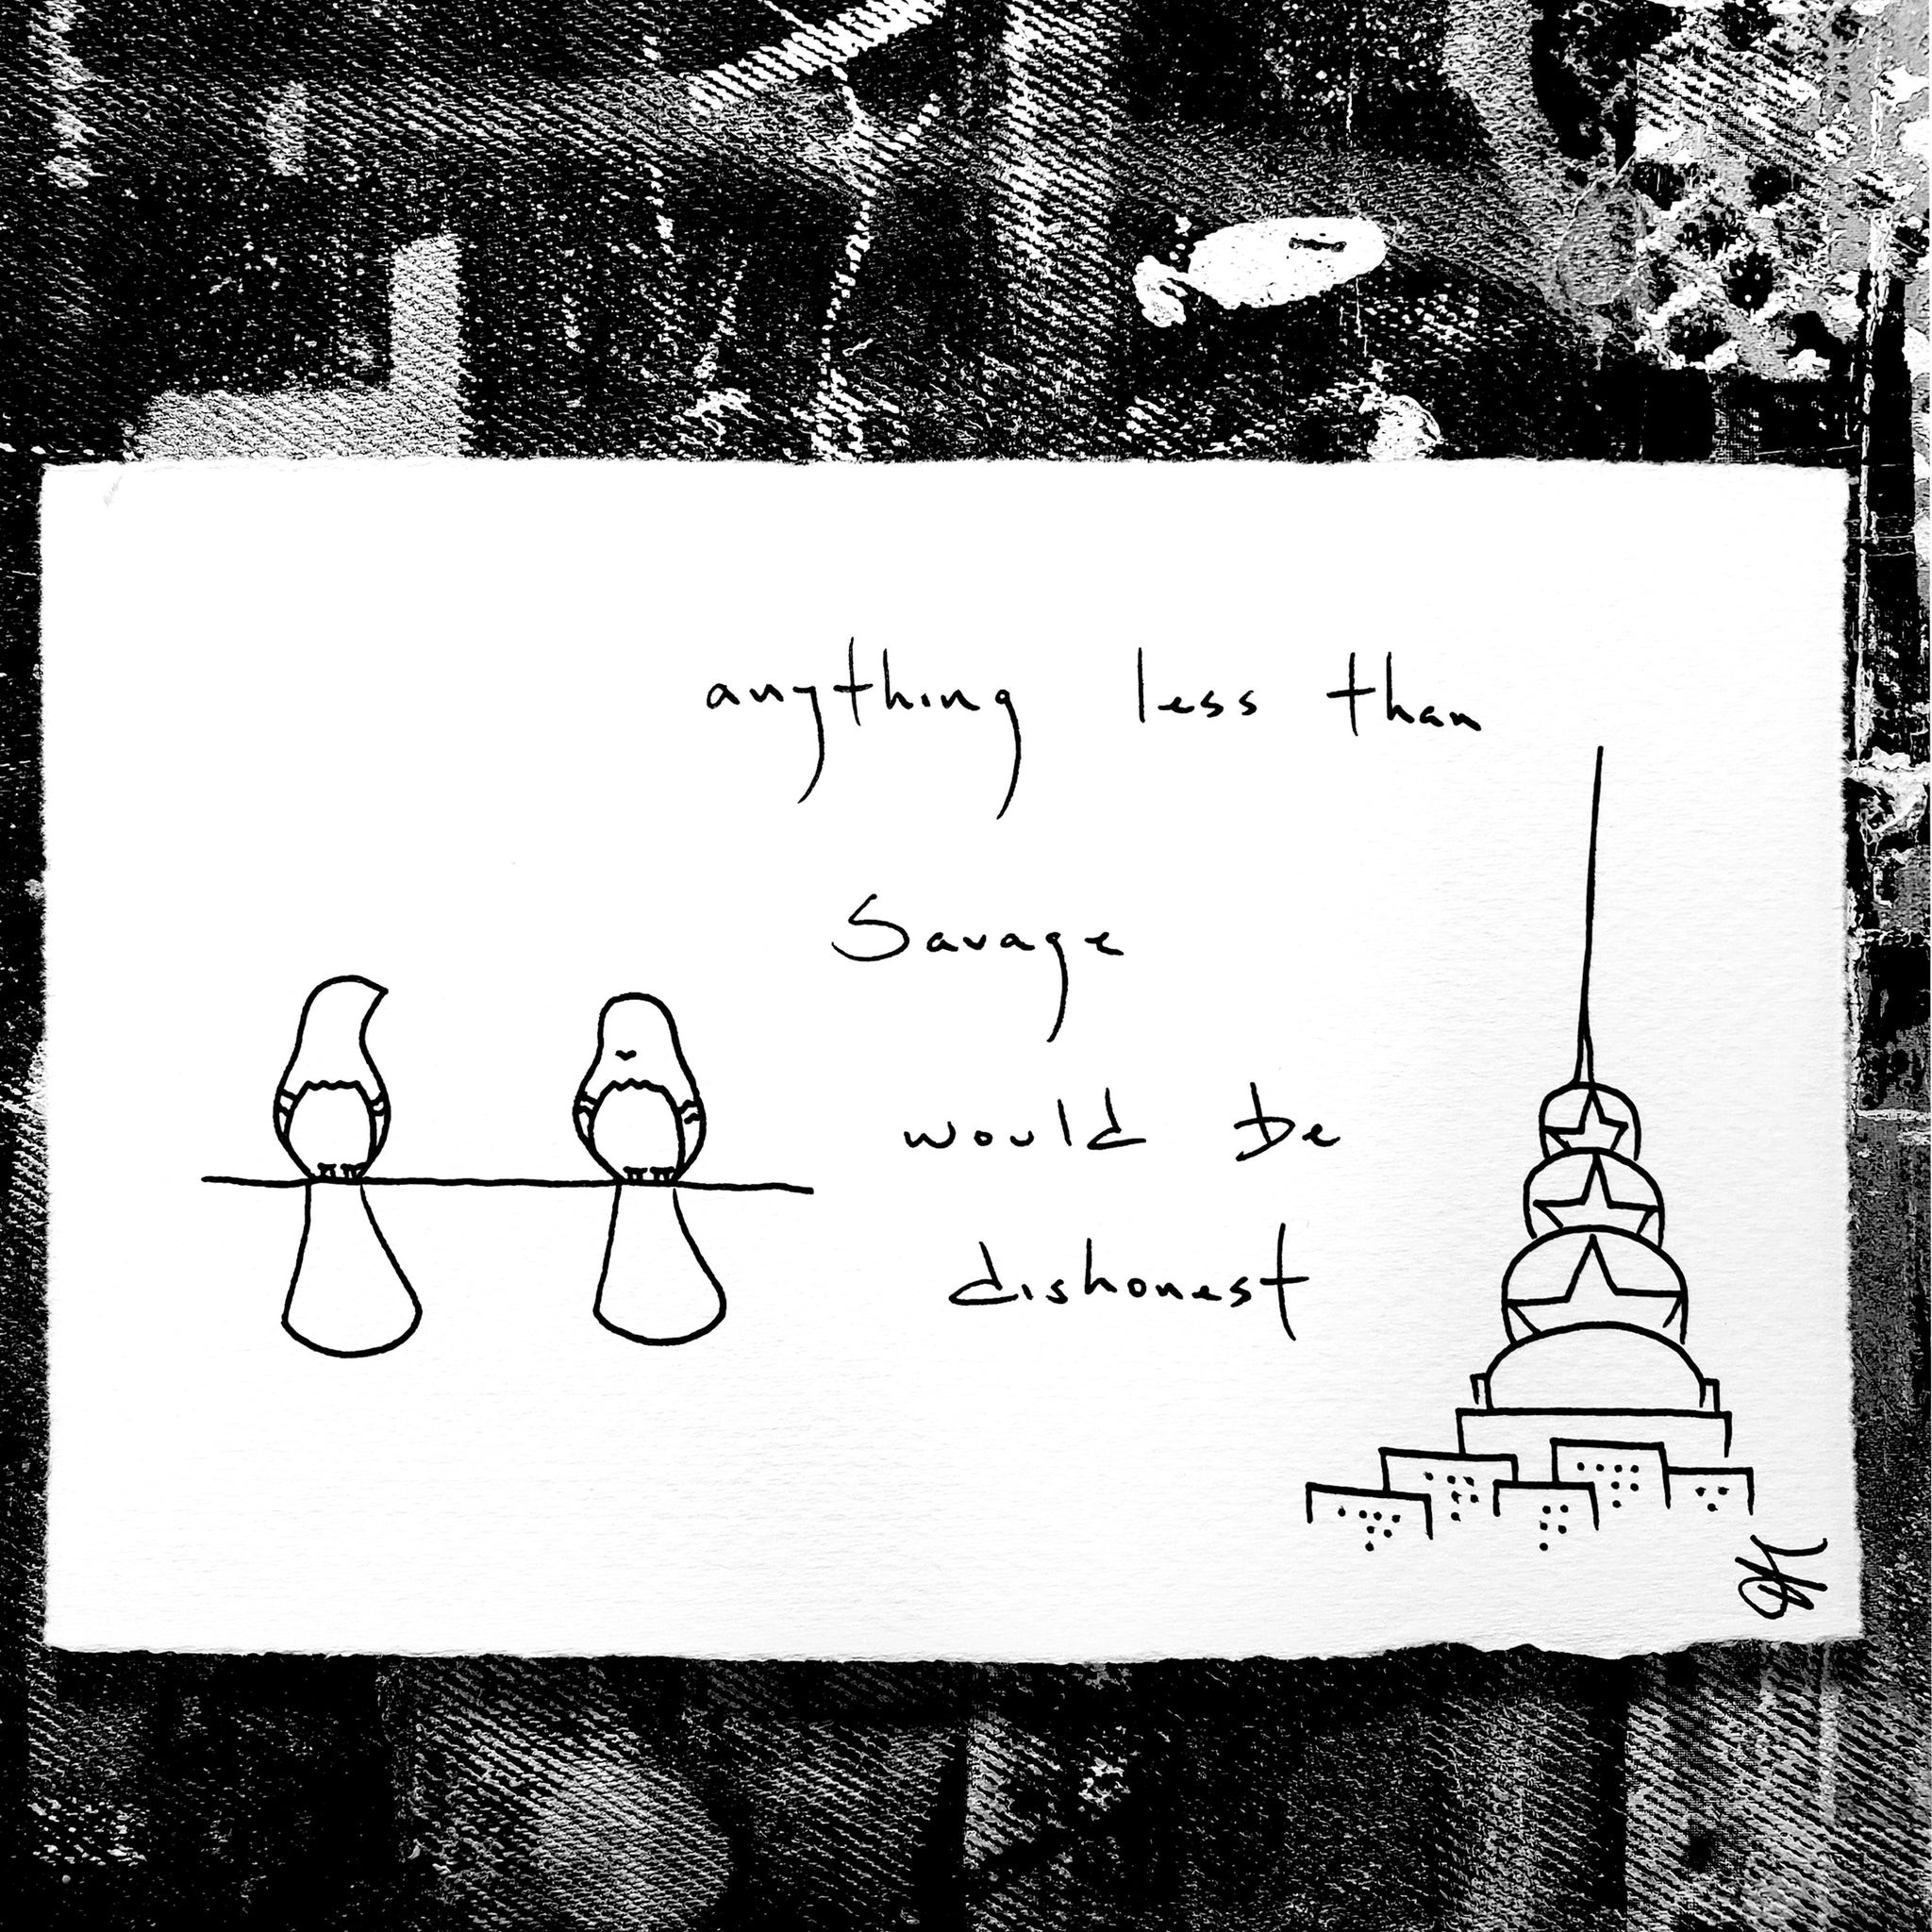 anything less than
Savage
would be
dishonest